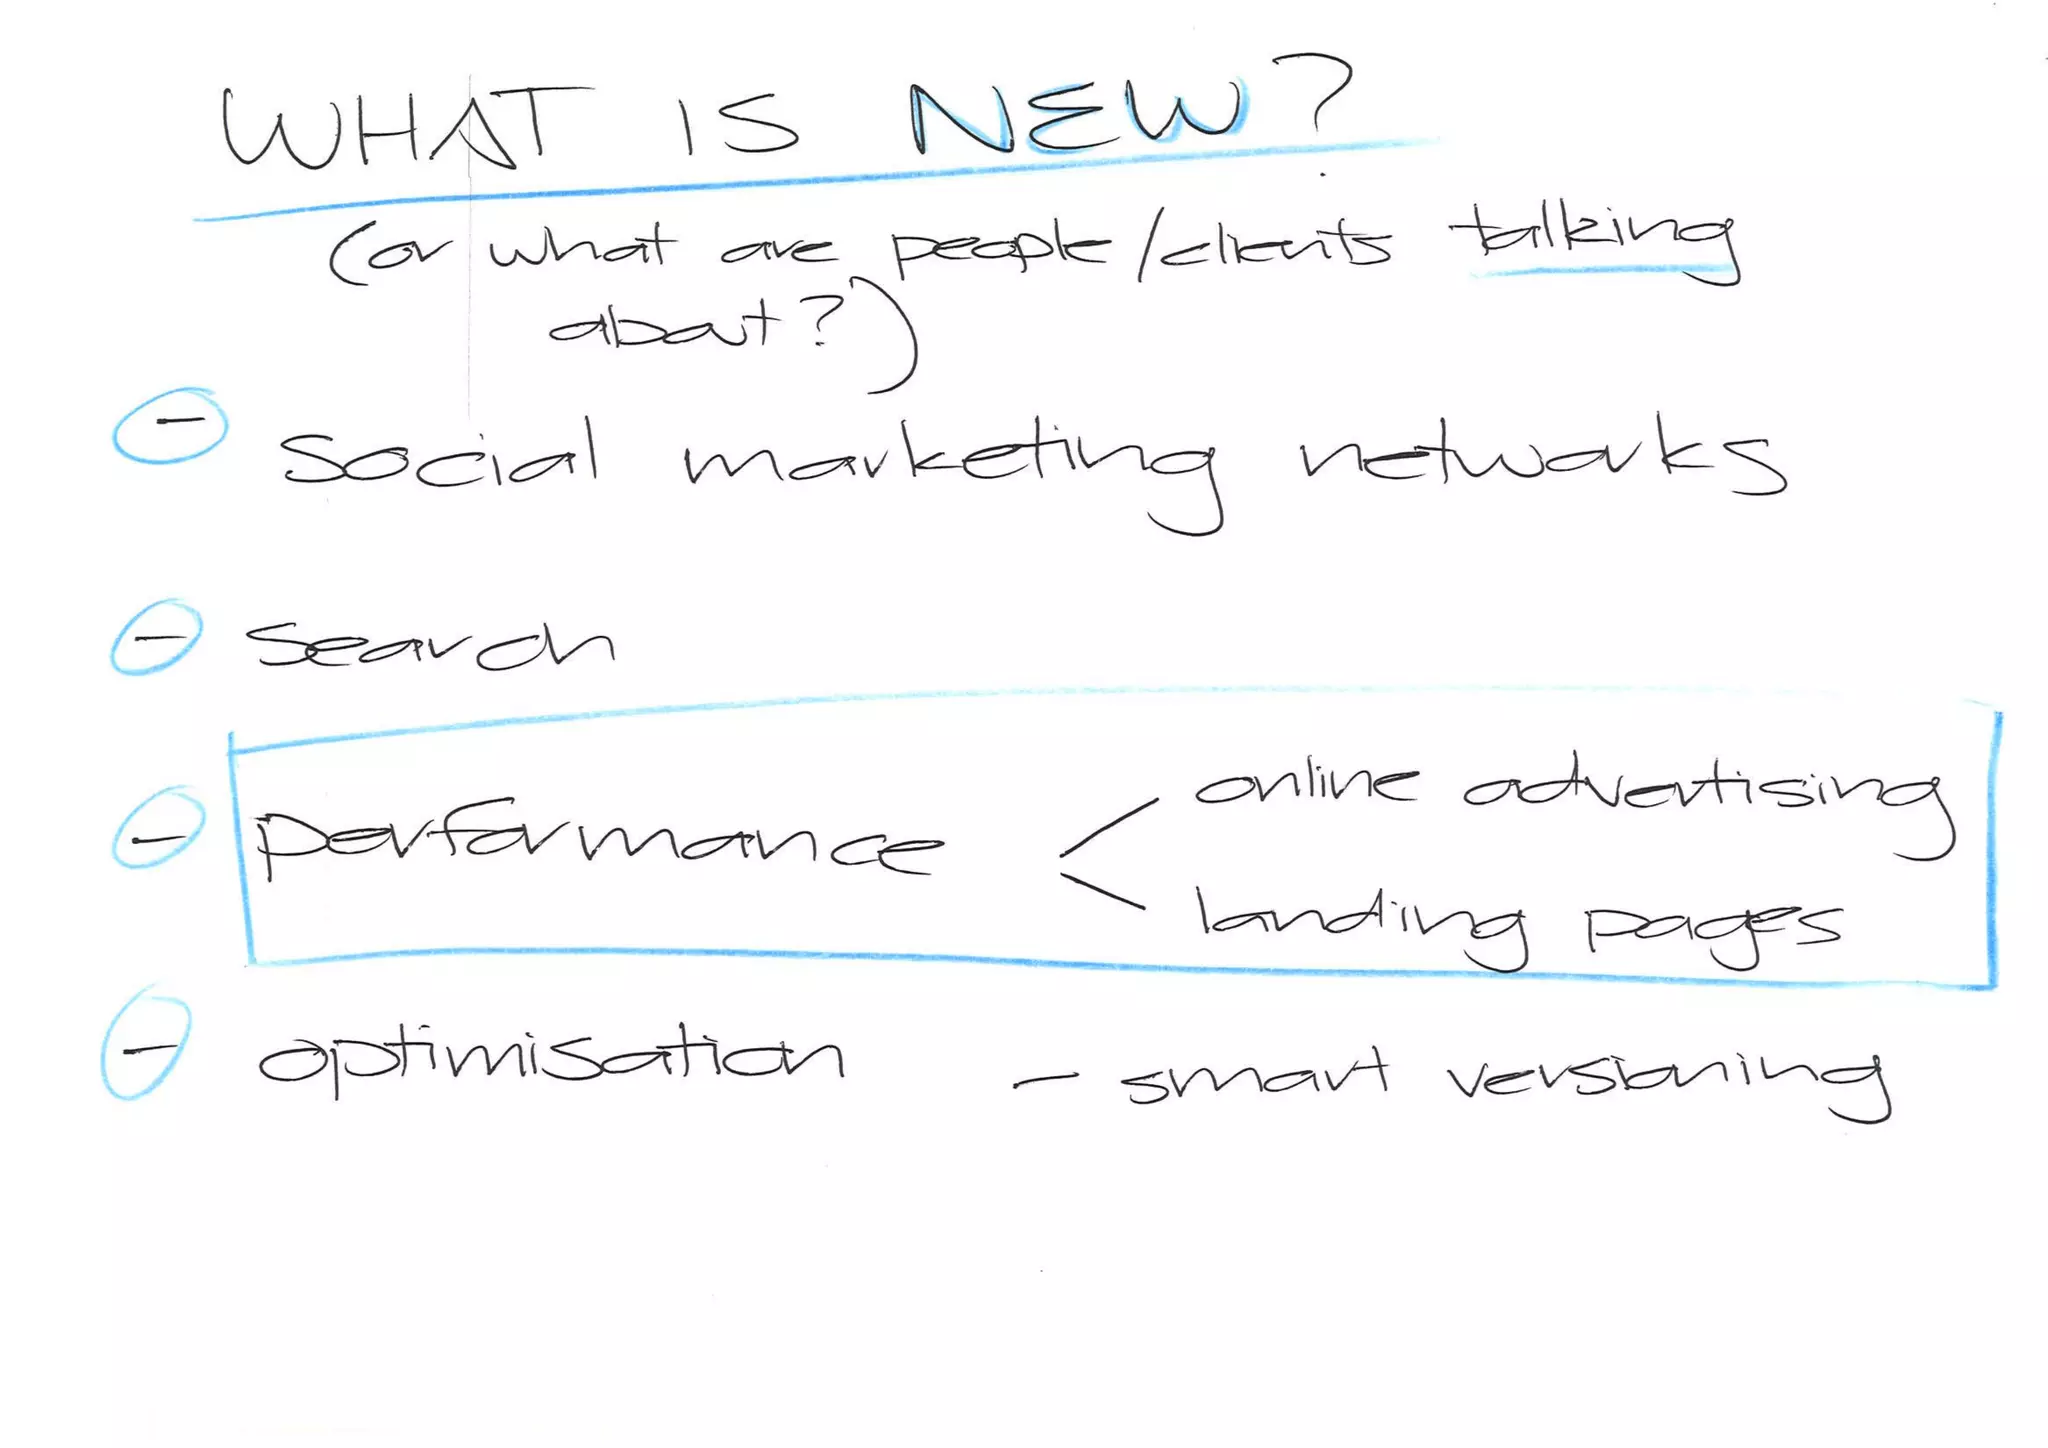 WHAT IS NEW?
(or what are people/clients talking
about?)
- social marketing networks
- search
- performance < online advertising
landing pages
- optimisation - smart versioning